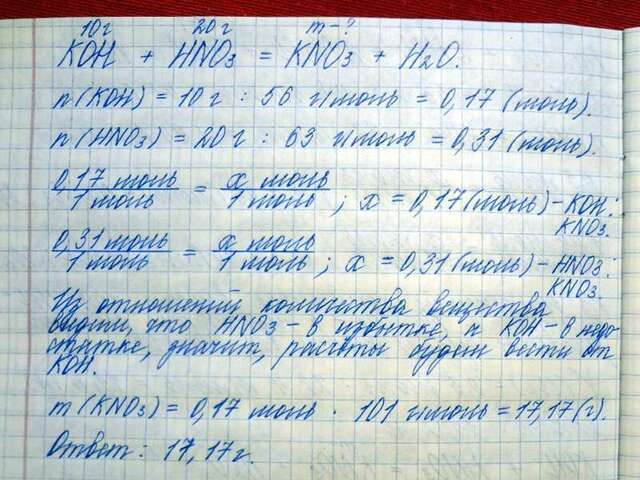 10г 20г m-?
KOH + HNO3 = KNO3 + H2O.
n(KOH) = 10 г : 56 г/моль = 0,17 (моль).
n(HNO3) = 20 г : 63 г/моль = 0,31 (моль).
0,17 моль / 1 моль = x моль / 1 моль ; x = 0,17 (моль) - KOH:
KNO3.
0,31 моль / 1 моль = x моль / 1 моль ; x = 0,31 (моль) - HNO3:
KNO3.
Из отношений количества вещества
видим, что HNO3 - в избытке, а KOH - в недо
статке, значит, расчёты будем вести от
KOH.
m(KNO3) = 0,17 моль · 101 г/моль = 17,17 (г).
Ответ: 17,17г.